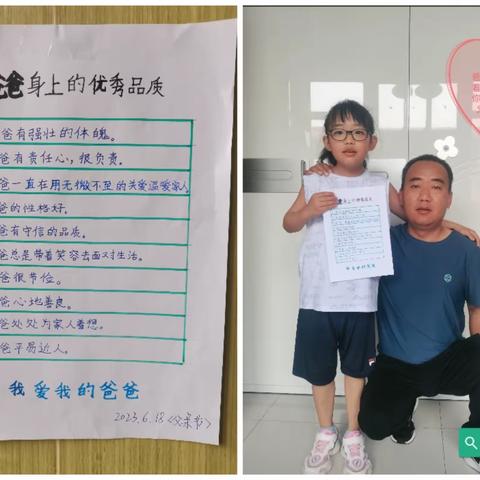 爸身上的优秀品质
爸有强壮的体魄。
爸有责任心,很负责。
爸一直在用无微不至的关爱温暖家人
爸的性格好。
爸有守信的品质。
爸总是带着笑容去面对生活。
爸很节俭。
爸心地善良。
爸处处为家人着想。
爸平易近人。
我爱我的爸爸
2023.6.18<父亲节>